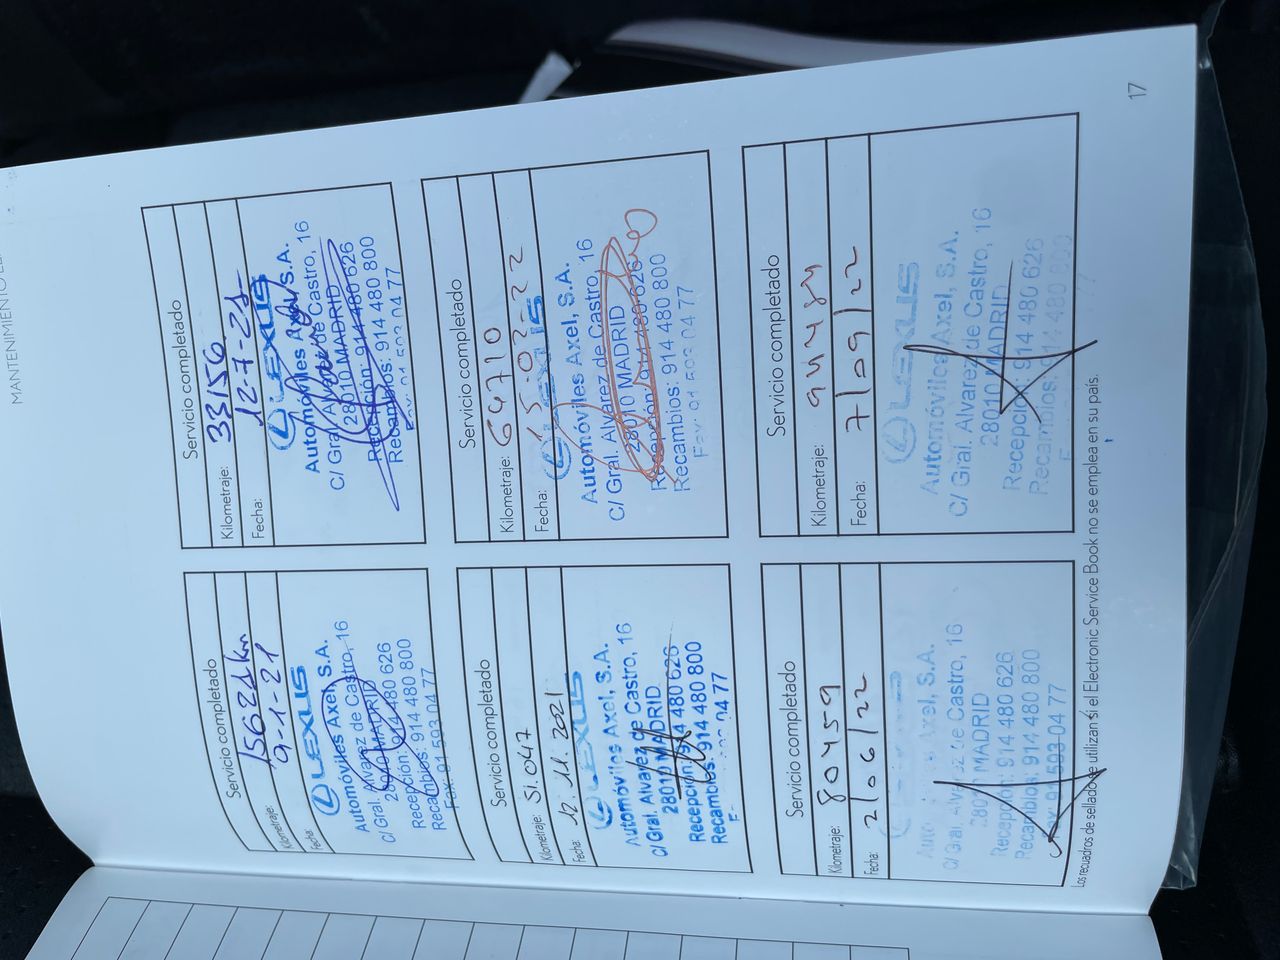 MANTENIMIENTO
Servicio completado
Kilometraje: 15621 km
Fecha: 9-1-21
LEXUS
Automóviles Axel, S.A.
C/ Gral. Alvarez de Castro, 16
28010 MADRID
Recepción: 914 480 626
Recambios: 914 480 800
Fax: 91 593 04 77
Servicio completado
Kilometraje: 33156
Fecha: 12-7-21
LEXUS
Automóviles Axel, S.A.
C/ Gral. Alvarez de Castro, 16
28010 MADRID
Recepción: 914 480 626
Recambios: 914 480 800
Fax: 91 593 04 77
Servicio completado
Kilometraje: 51.047
Fecha: 12.11.2021
LEXUS
Automóviles Axel, S.A.
C/ Gral. Alvarez de Castro, 16
28010 MADRID
Recepción: 914 480 626
Recambios: 914 480 800
04 77
Servicio completado
Kilometraje: 64710
Fecha:
LEXUS
Automóviles Axel, S.A.
C/ Gral. Alvarez de Castro, 16
28010 MADRID
Recepción: 914 480 626
Recambios: 914 480 800
Fax: 91 593 04 77
Servicio completado
Kilometraje: 80459
Fecha: 2/06/22
Axel, S.A.
C/ Gral. Alvarez de Castro, 16
28010 MADRID
Recepción: 914 480 626
Recambios: 914 480 800
Fax: 91 593 04 77
Servicio completado
Kilometraje: 94484
Fecha: 7/09/22
LEXUS
Automóviles Axel, S.A.
C/ Gral. Alvarez de Castro, 16
28010 MADRID
Recepción: 914 480 626
Recambios: 914 480 800
Los recuadros de sellado se utilizan si el Electronic Service Book no se emplea en su país.
17